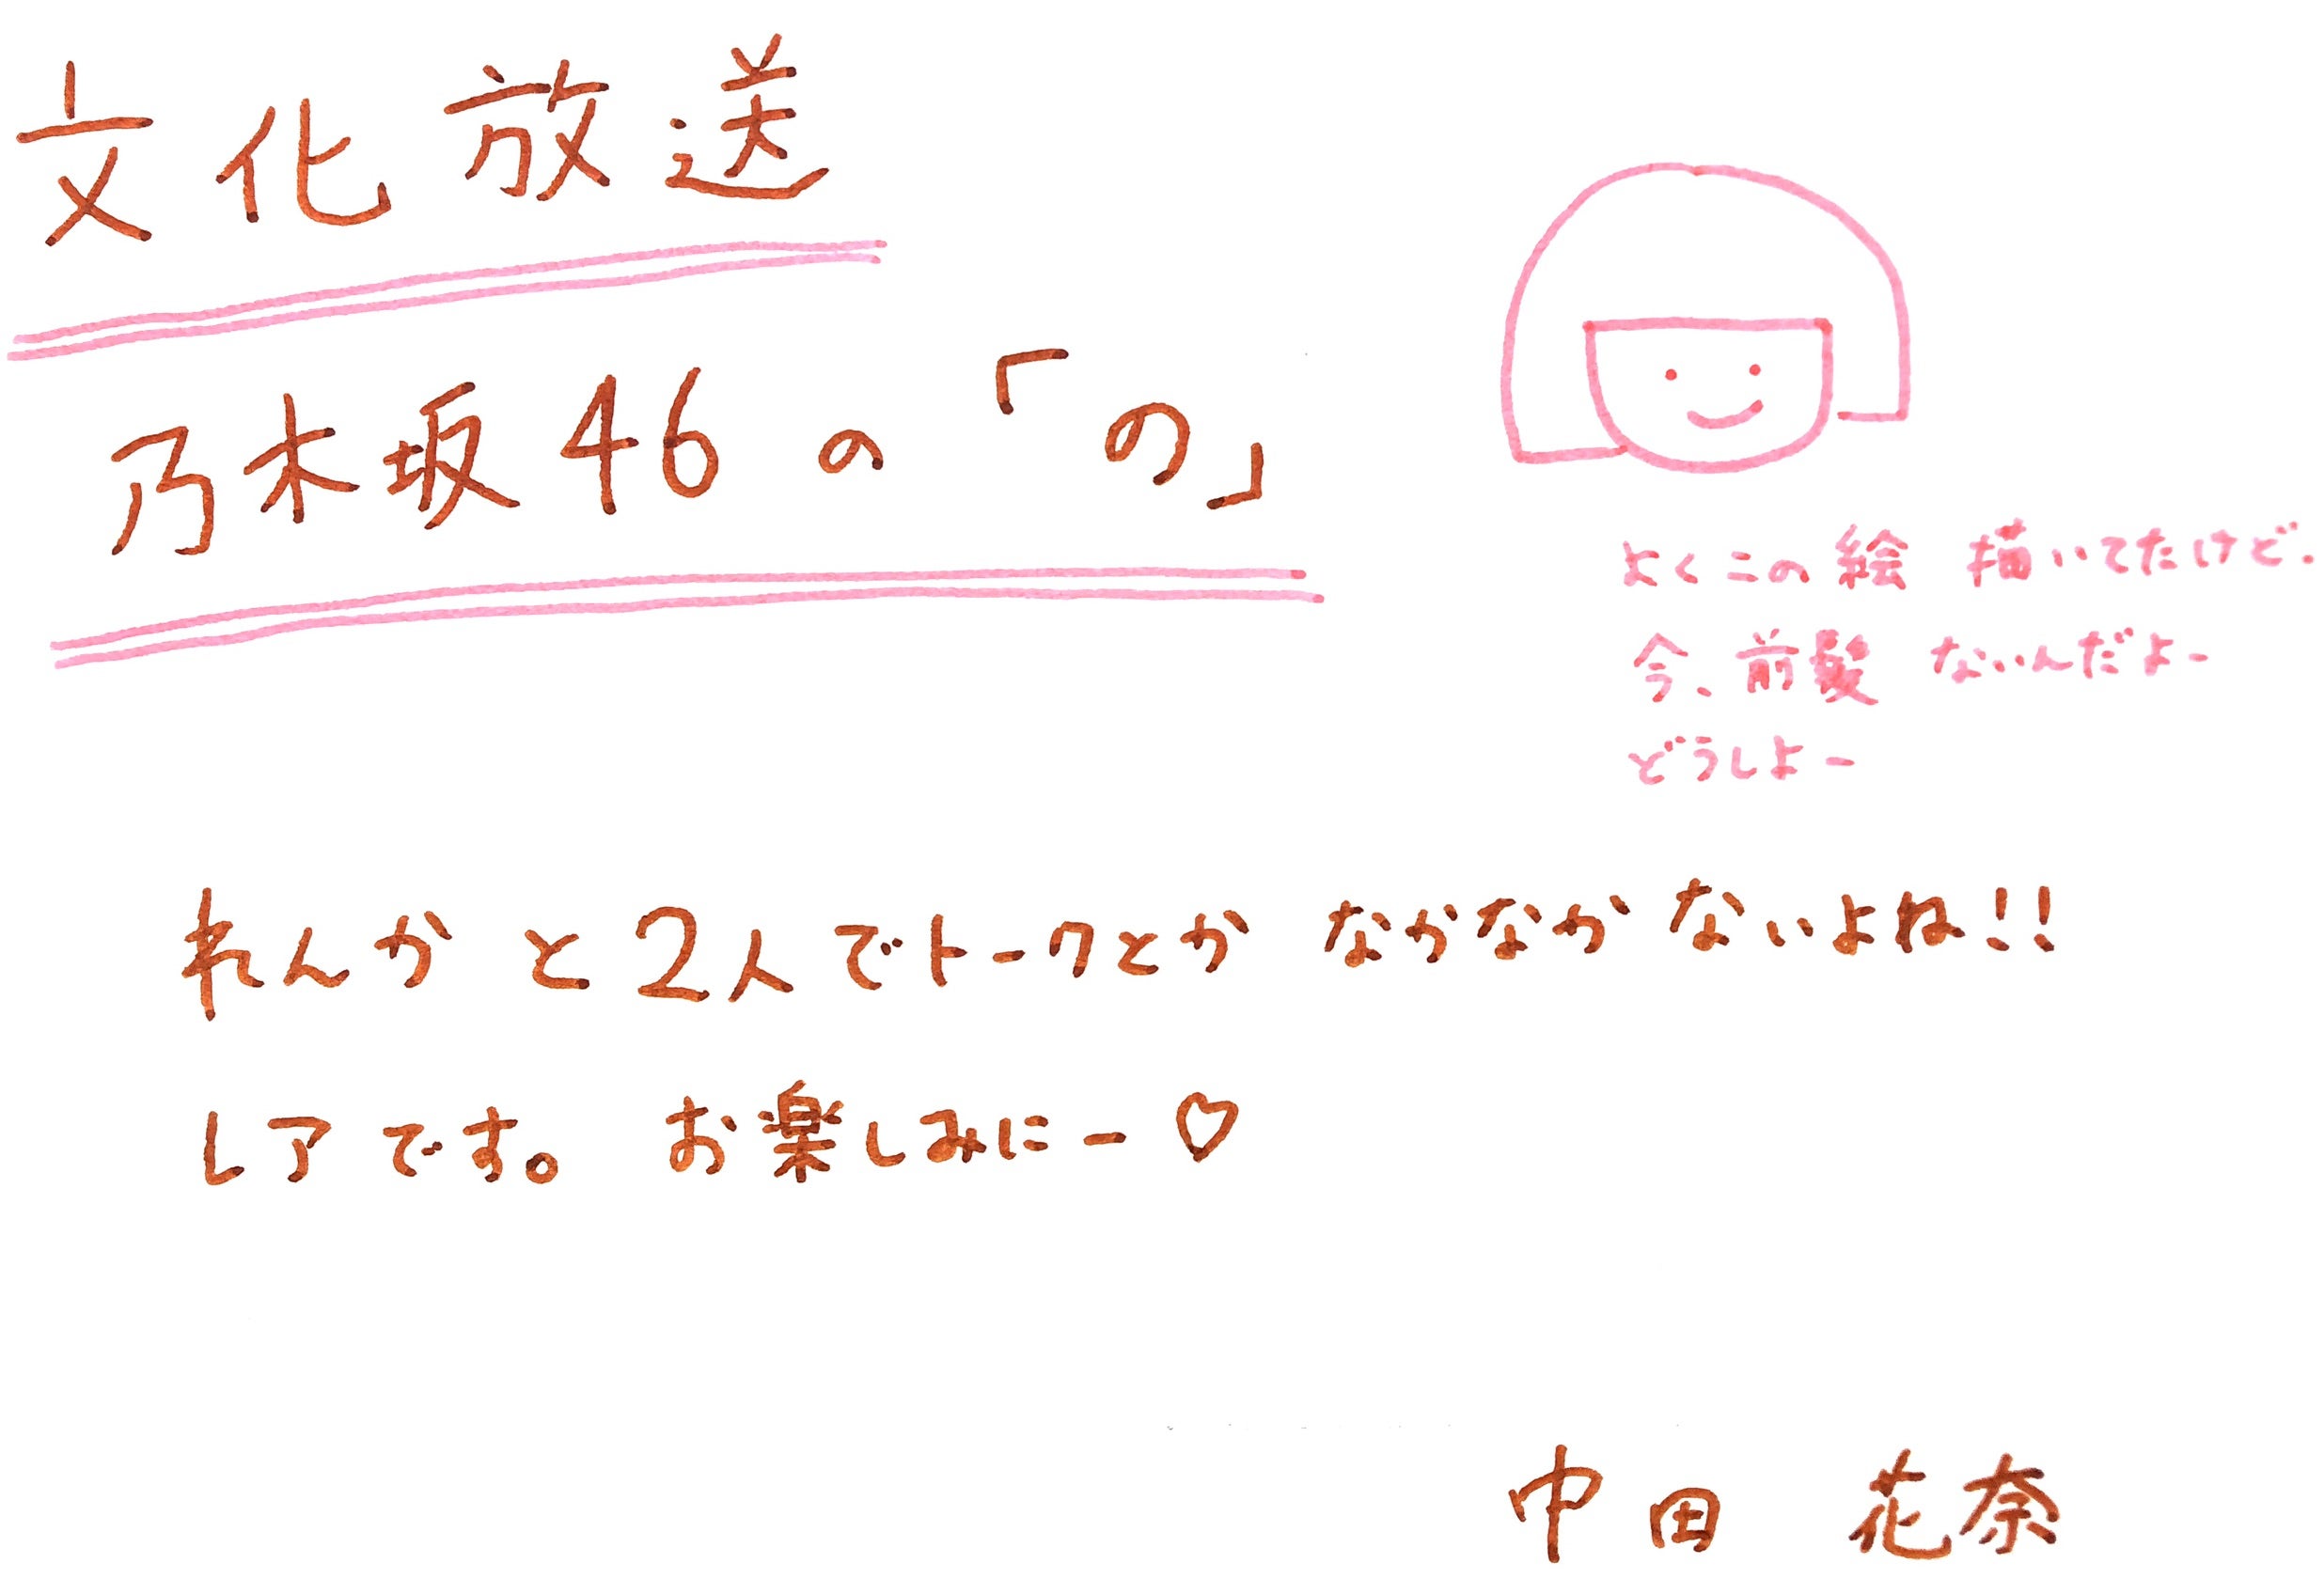 文化放送
乃木坂46の「の」
よくこの絵 描いてたけど.
今、前髪 ないんだよー
どうしよー
れんかと2人でトークとか なかなかないよね!!
レアです。 お楽しみにー♡
中田 花奈